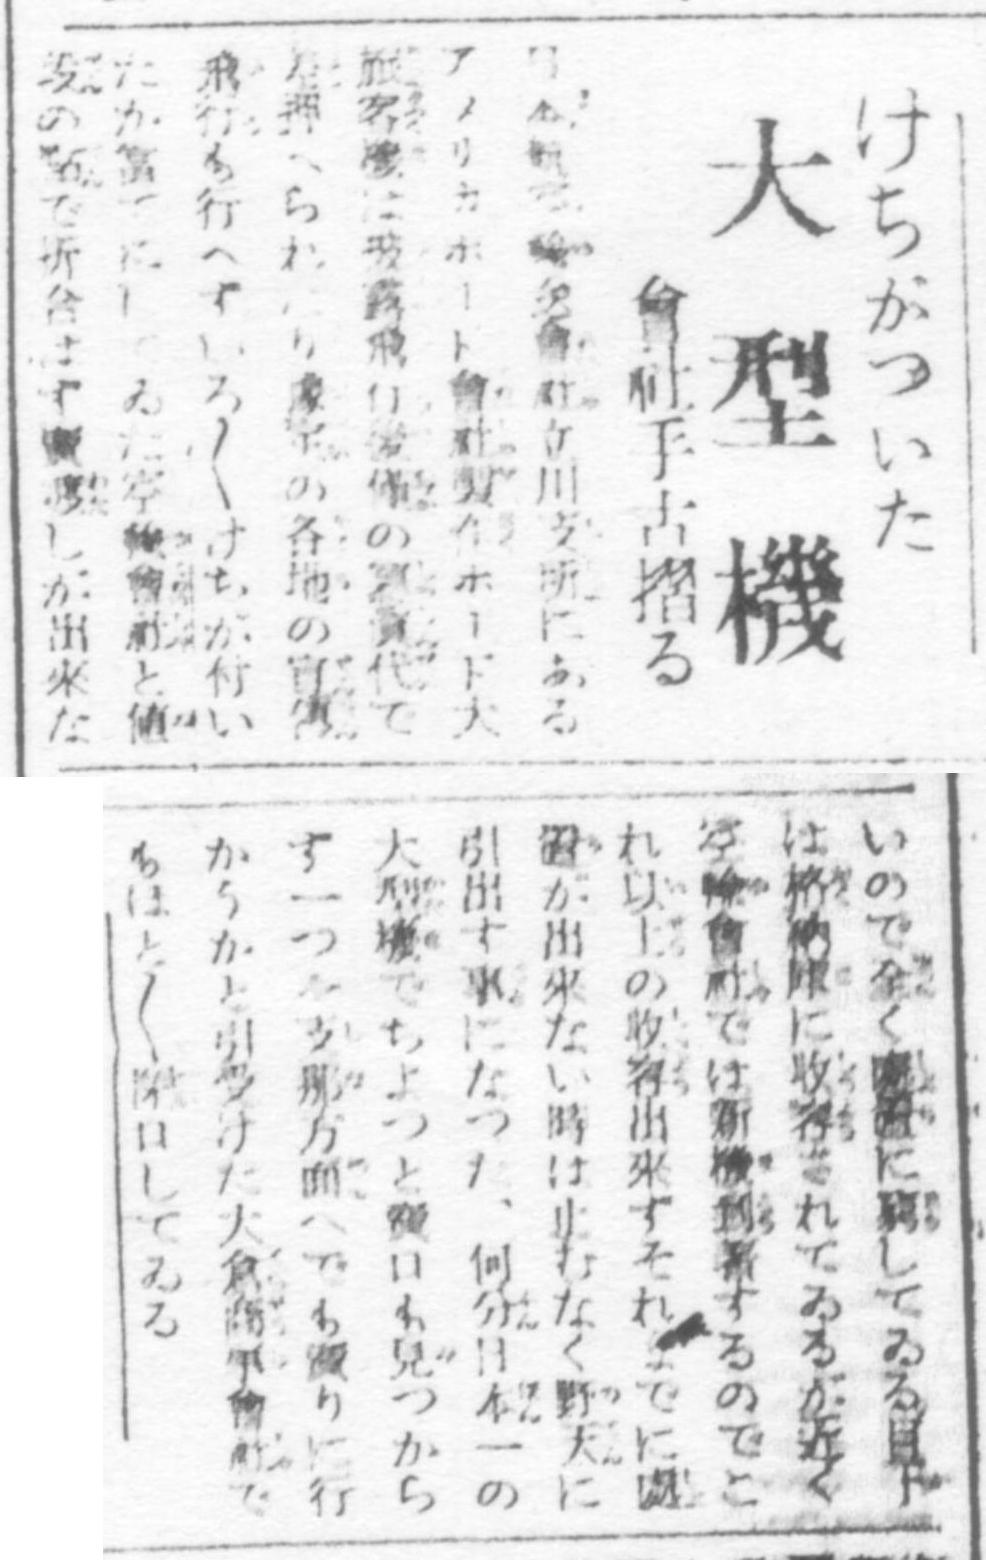 けちがついた
大型機
會社手古摺る
日本航空輸送會社立川支所にある
アメリカホート會社製作ホード大
旅客機は披露飛行準備の買代で
差押へられたり豫定の各地の宣傳
飛行も行へずいろ〱けちが付い
たが當てにしてゐた空輸會社と値
段の點で折合はず賣渡しが出來な
いので全く處置に窮してゐる目下
は格納庫に收容されてゐるが近く
空輸會社では新機到著するのでと
れ以上の收容出來ずそれまでに處
置が出來ない時は止むなく野天に
引出す事になつた、何分日本一の
大型機でちよつと賣口も見つから
ず一つ支那方面へでも賣りに行
かうかと引受けた大倉商事會社で
もほと〱閉口してゐる